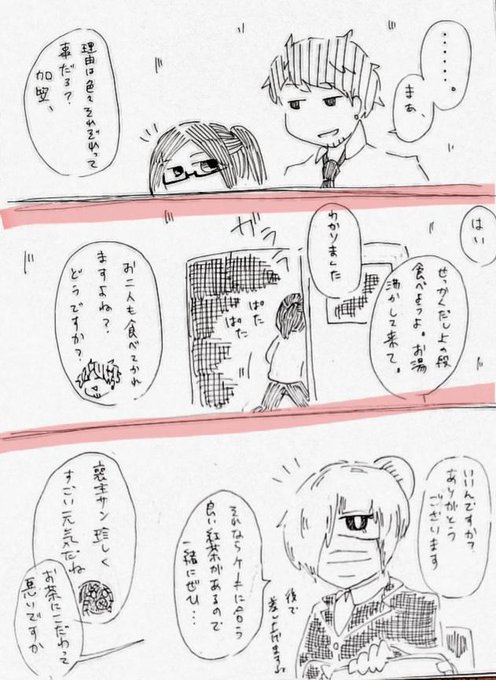 ・・・・・・。
まぁ、
理由は色々それぞれって
事だろ?
加堅、
はい
せっかくだし上の段
食べよっよ。お湯
沸かして来て。
わかりました
ガチャ
ぱた
ぱた
ぱた
お二人も食べてかれ
ますよね?
どうですか?
いいんですか?
ありがとう
ございます
それならケーキに合う
良い紅茶があるので
一緒にぜひ…
後で
差し上げますよ
サン珍しく
すごい元気だね
お茶にこだわって
悪いですか